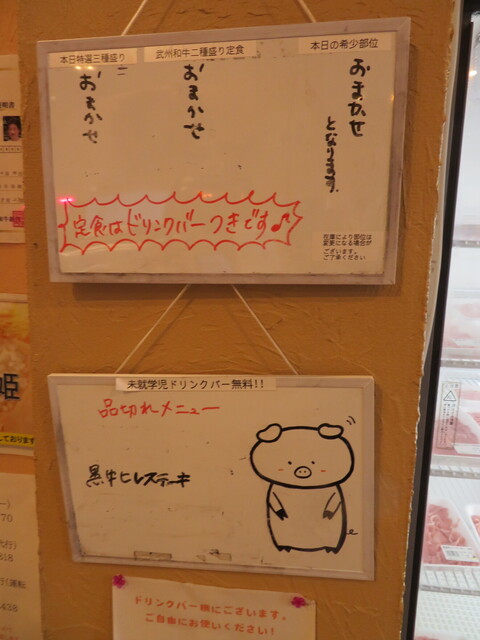 本日特選三種盛り
武州和牛二種盛り定食
本日の希少部位
おまかせ
おまかせ
おまかせ
となります。
定食はドリンクバーつきです♪
在庫により部位は
変更になる場合が
ございます。
ご了承ください
未就学児ドリンクバー無料!!
品切れメニュー
黒牛ヒレステーキ
ドリンクバー横にございます。
ご自由にお使いください!
姫
しております
代行)
318
438